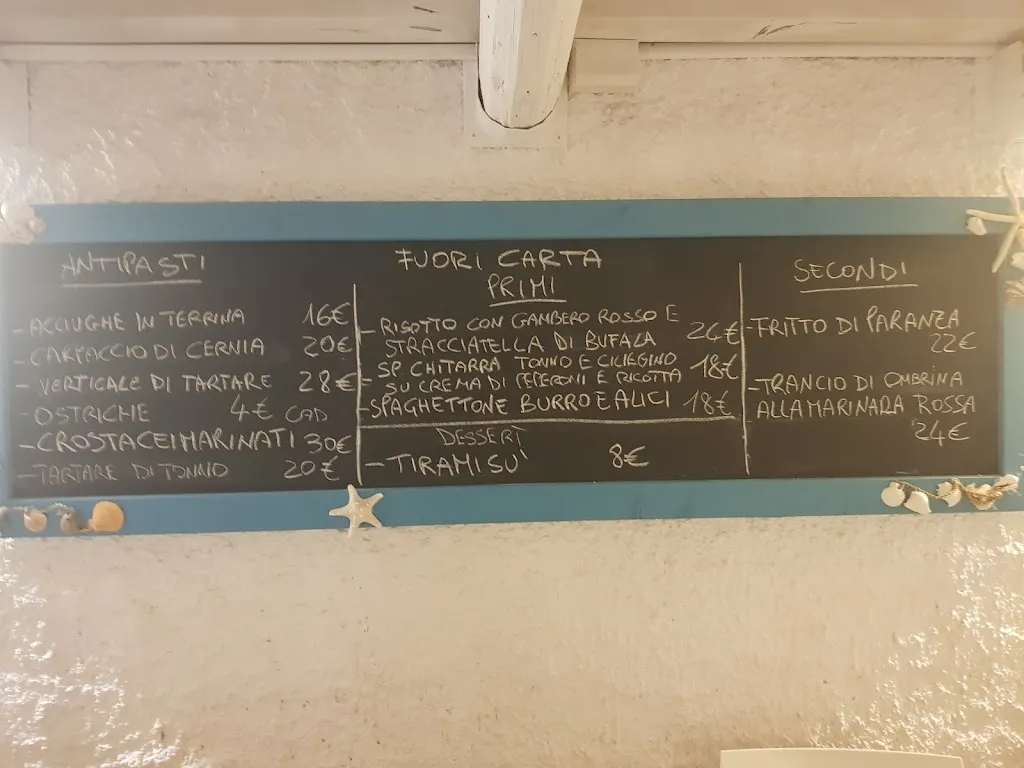 ANTIPASTI
- ACCIUGHE IN TERRINA 16€
- CARPACCIO DI CERNIA 20€
- VERTICALE DI TARTARE 28€
- OSTRICHE 4€ CAD
- CROSTACEI MARINATI 30€
- TARTARE DI TONNO 20€
FUORI CARTA
PRIMI
- RISOTTO CON GAMBERO ROSSO E
STRACCIATELLA DI BUFALA 24€
SP CHITARRA TONNO E CILIEGINO
- SU CREMA DI PEPERONI E RICOTTA 18€
- SPAGHETTONE BURRO E ALICI 18€
DESSERT
- TIRAMISU' 8€
SECONDI
- FRITTO DI PARANZA
22€
- TRANCIO DI OMBRINA
ALLA MARINARA ROSSA
24€